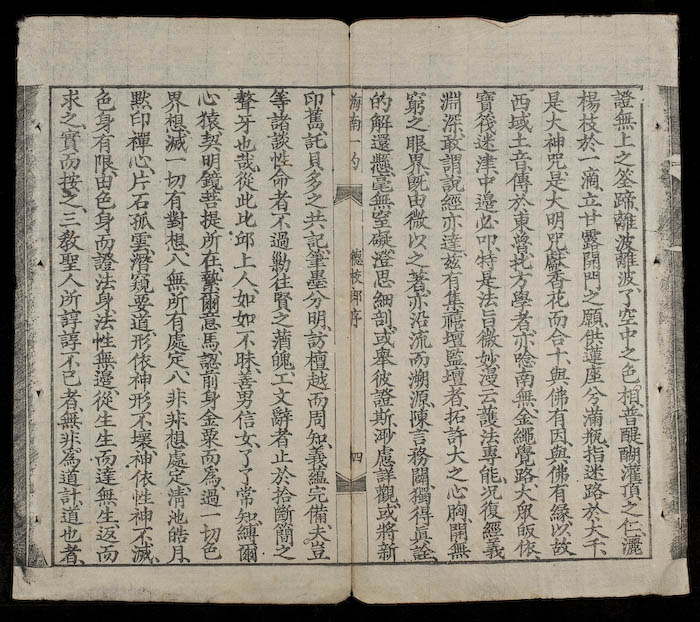 證無上之筌蹄離波離波了空中之色相普醍醐灌頂之仁灑
楊枝於一滴立甘露開門之願供蓮座兮滿瓶指迷路於大千
是大神咒是大明咒獻香花而合十與佛有因與佛有緣以故
西域土音傳於東魯北方學者亦唸南無金繩覺路大眾皈依
寶筏迷津中邊必叩特是法旨微妙漫云護法專能况復經義
淵深敢謂說經亦達茲有集禧壇監壇者拓許大之心胸開無
窮之眼界既由微以之著亦沿流而溯源陳言務闢獨得真詮
的解還懸毫無窒礙澄思細剖或舉彼證斯渺慮詳觀或將新
海南一勺 序 四
印舊託貝多之共記筆墨分明訪檀越而周知義蘊完備夫豈
等諸談性命者不過勦往賢之蒲魄工文辭者止於拾斷簡之
聱牙也哉從此比邱上人如如不昧善男信女了了常知縛爾
心猿契明鏡菩提所在縶爾意馬認前身金粟而為過一切色
界想滅一切有對想入無所有處定入非非想處定清池皓月
默印禪心片石孤雲潛窺要道形依神形不壞神依性神不滅
色身有限由色身而證法身法性無邊從生生而達無生返而
求之實而按之三教聖人所諄諄不已者無非為道計道也者